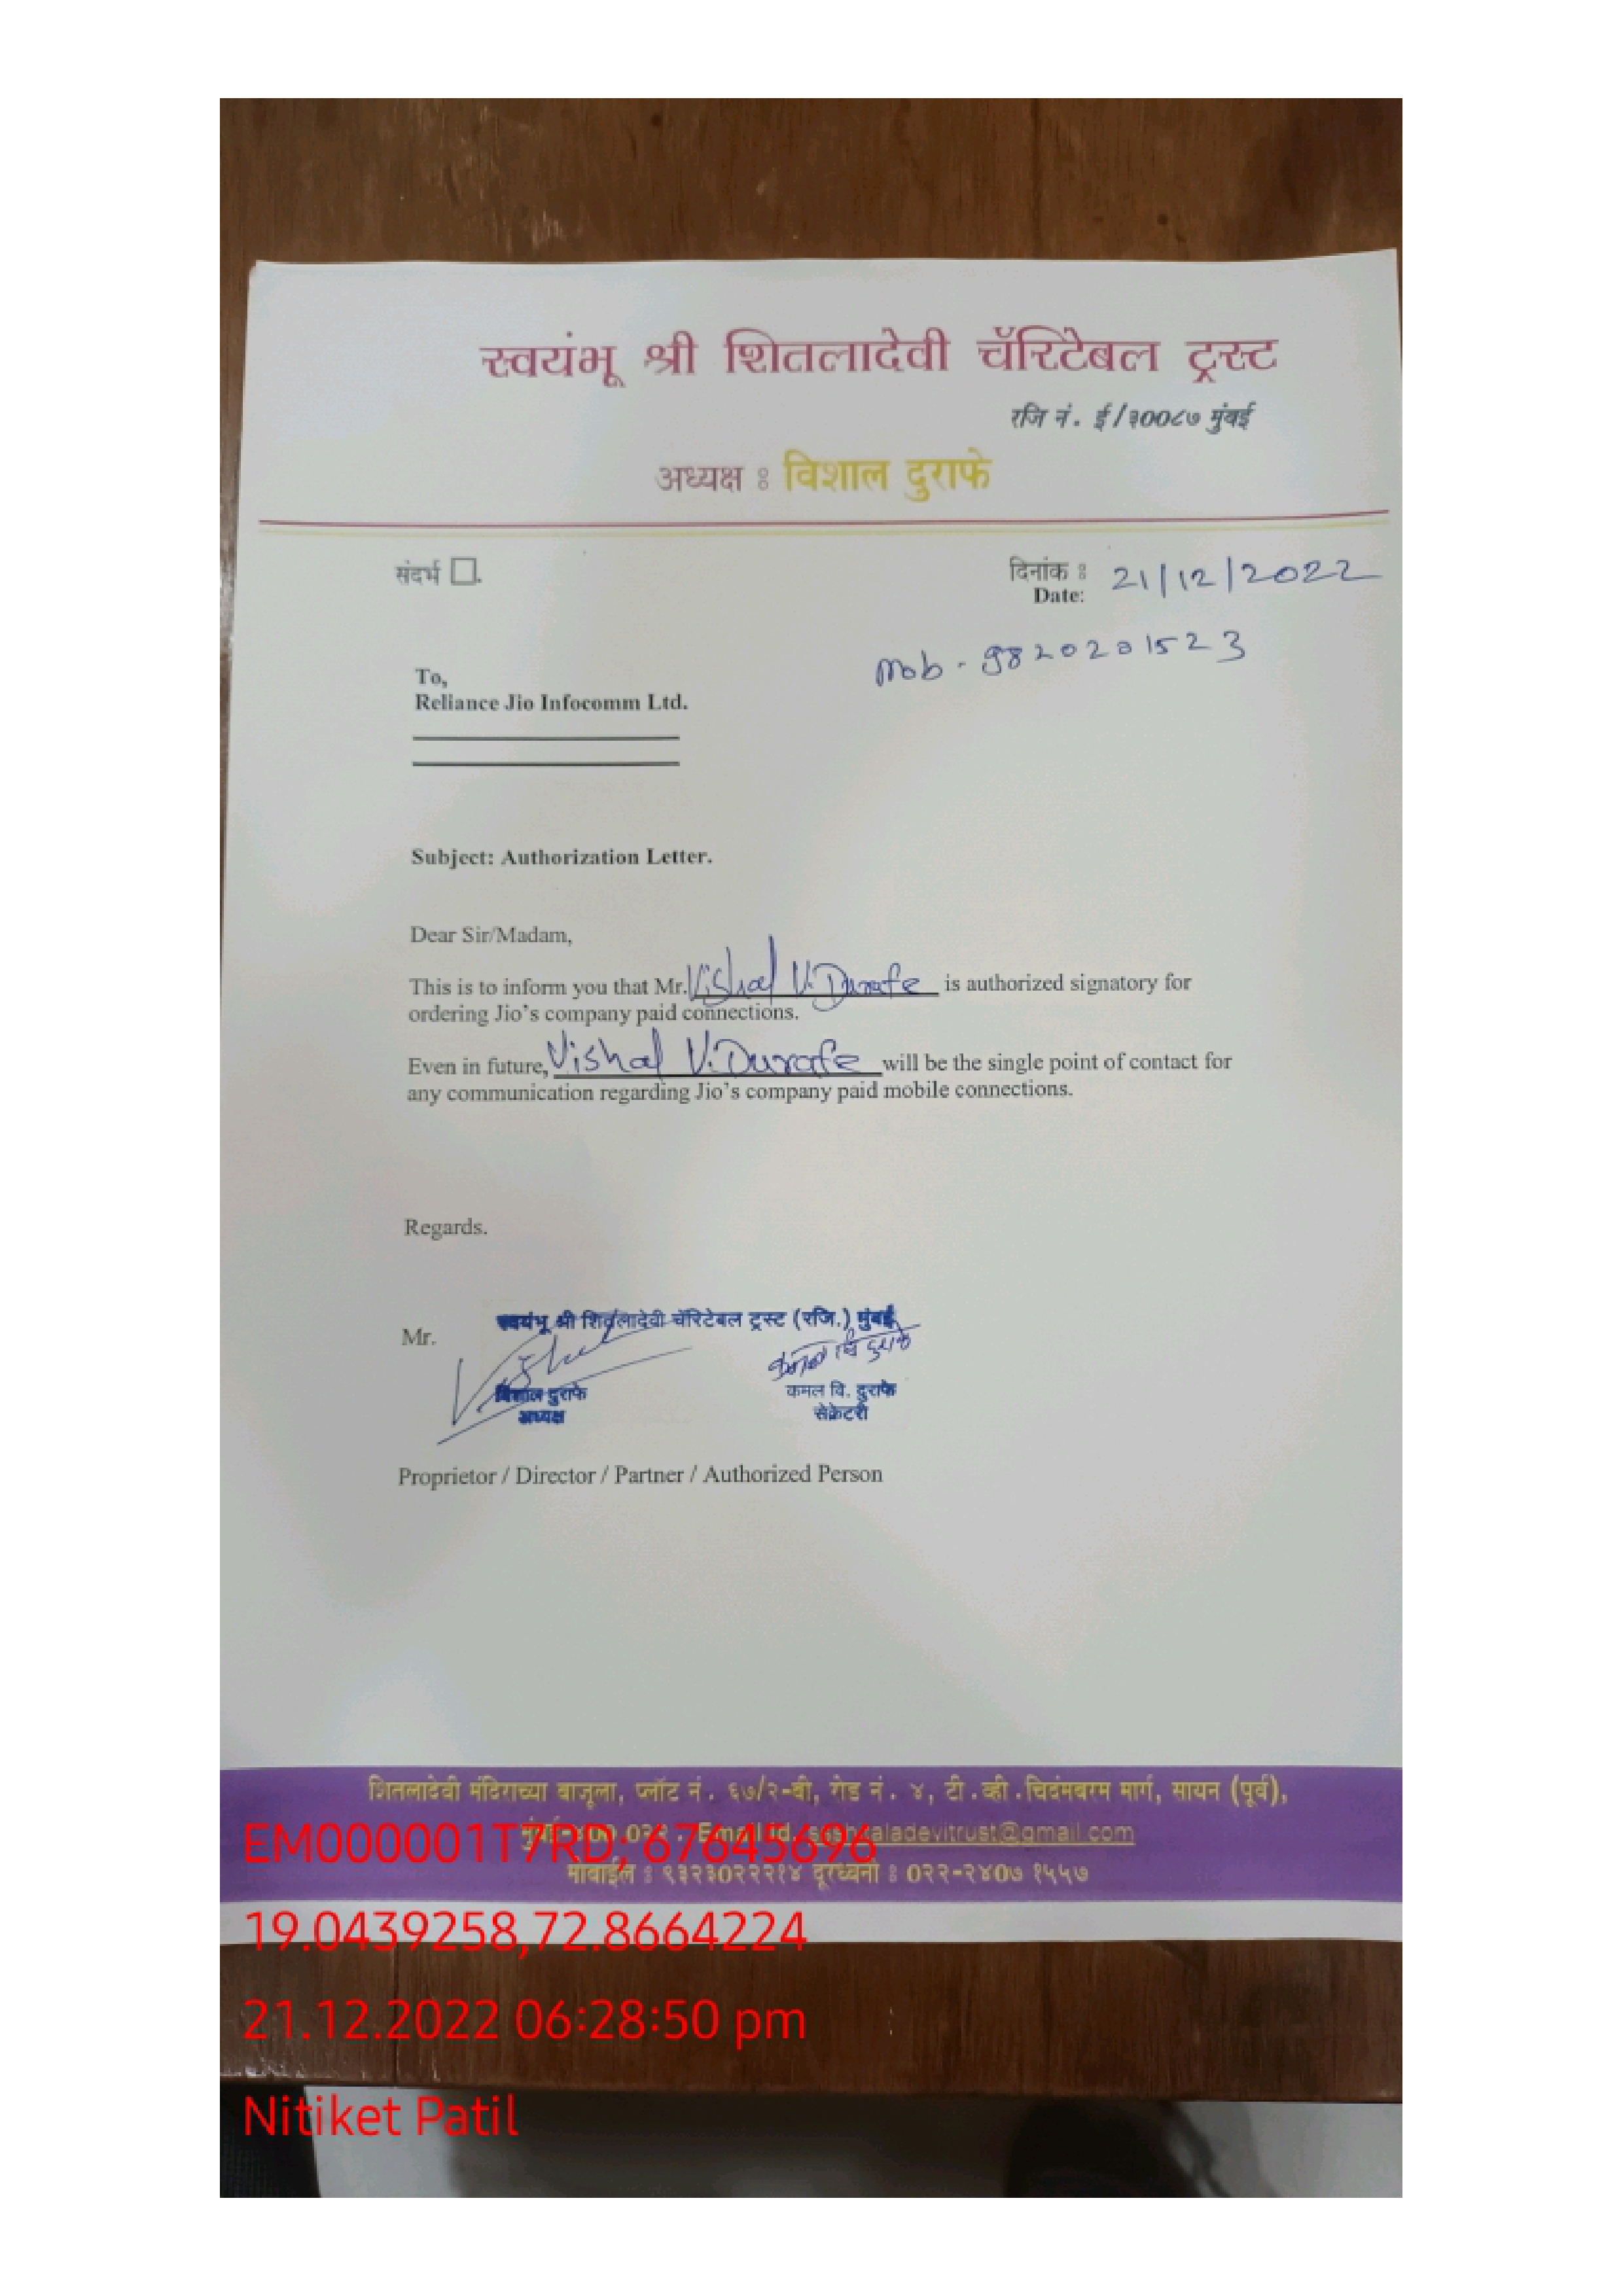 स्वयंभू श्री शितलादेवी चॅरिटेबल ट्रस्ट
रजि नं. ई/३००८७ मुंबई
अध्यक्ष : विशाल दुराफे
संदर्भ
दिनांक :
Date: 21/12/2022
Mob - 9820201523
To,
Reliance Jio Infocomm Ltd.
Subject: Authorization Letter.
Dear Sir/Madam,
This is to inform you that Mr. Vishal V. Durafe is authorized signatory for
ordering Jio's company paid connections.
Even in future, Vishal V. Durafe will be the single point of contact for
any communication regarding Jio's company paid mobile connections.
Regards.
Mr.
स्वयंभू श्री शितलादेवी चॅरिटेबल ट्रस्ट (रजि.) मुंबई
Vishal कमल वि दुराफे
विशाल दुराफे कमल वि. दुराफे
अध्यक्ष सेक्रेटरी
Proprietor / Director / Partner / Authorized Person
शितलादेवी मंदिराच्या बाजूला, प्लॉट नं. ६७/२-बी, रोड नं. ४, टी.व्ही.चिदंमबरम मार्ग, सायन (पूर्व),
मुंबई-४०० ०२२. Email id.
मोबाईल : ९३२३०२२२१४ दूरध्वनी : ०२२-२४०७ १५५७
EM000001T7RD; 67645696
19.0439258,72.8664224
21.12.2022 06:28:50 pm
Nitiket Patil